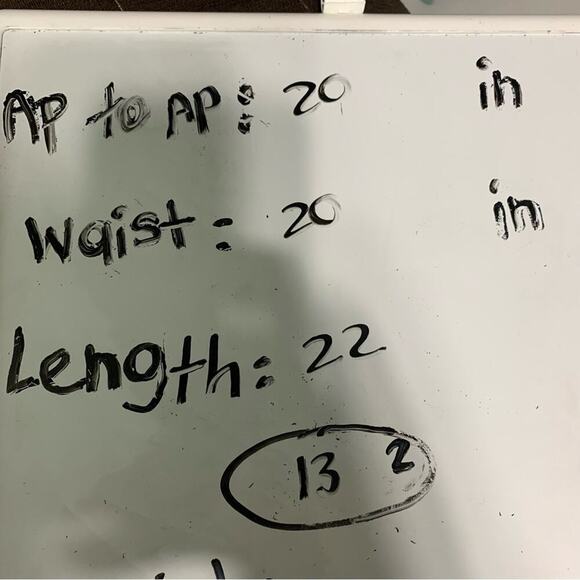 AP to AP: 20 in
Waist: 20 in
Length: 22
13 2